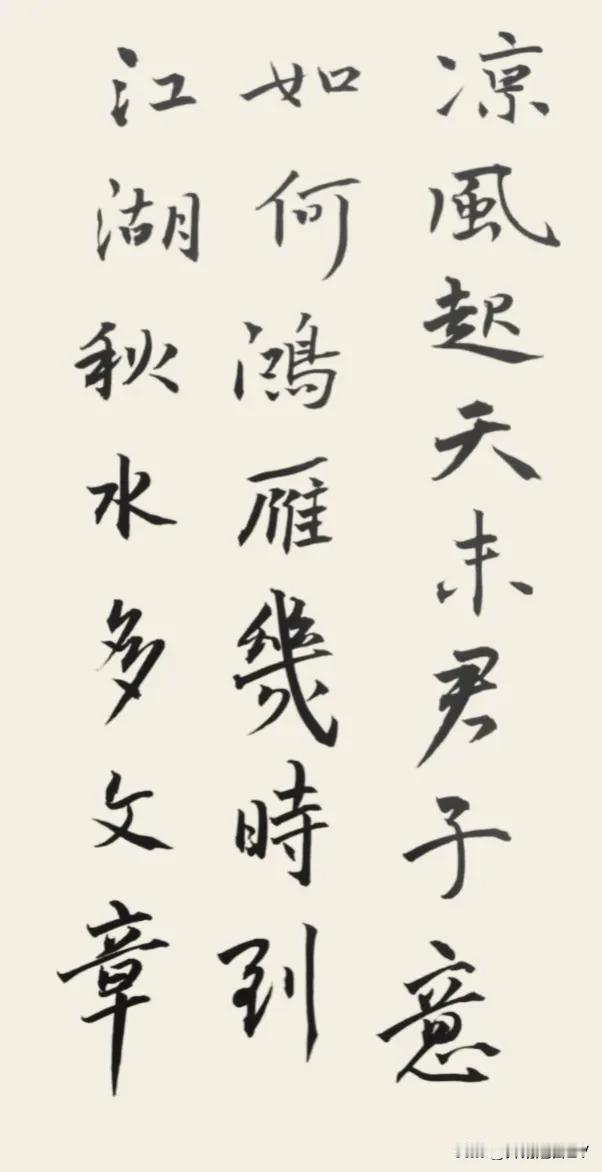 凉風起天末君子意
如何鴻雁幾時到
江湖秋水多文章